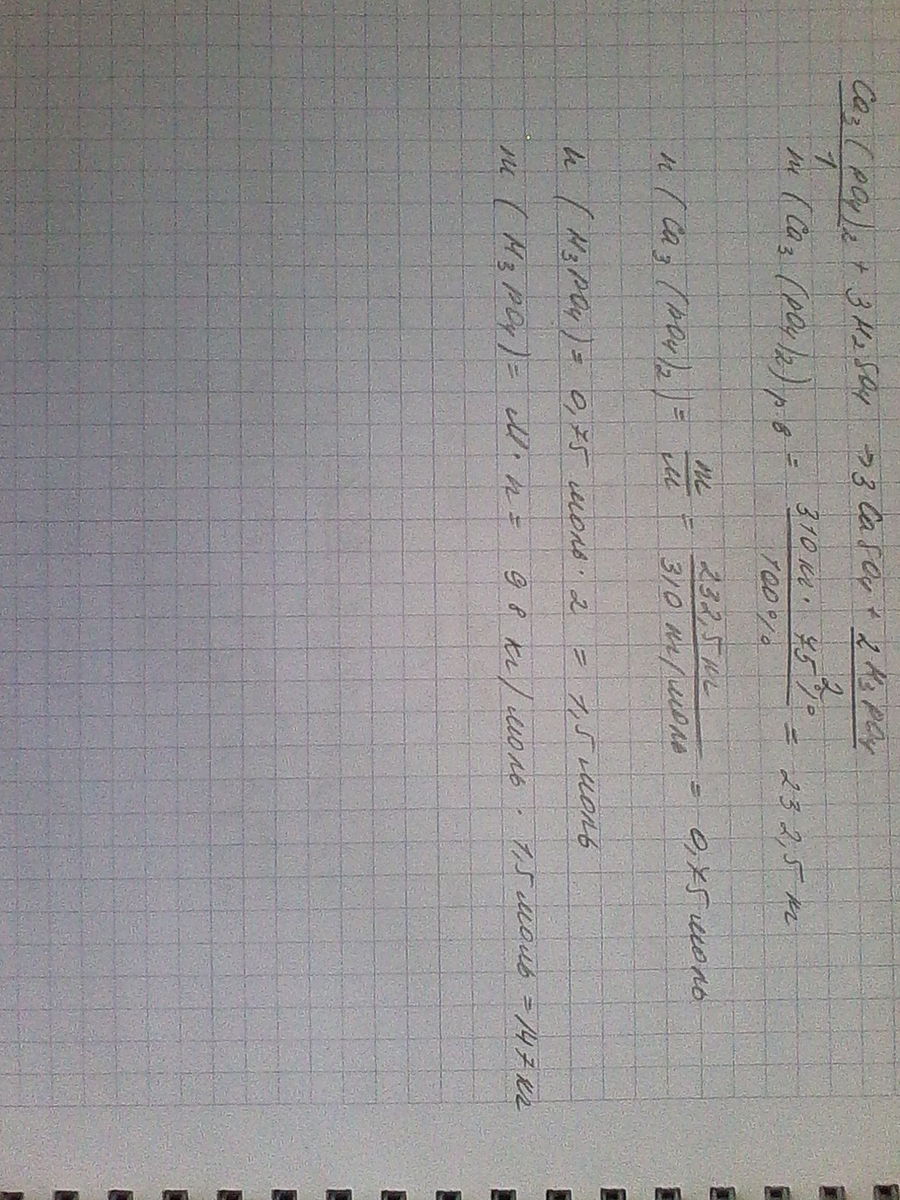 Ca₃(PO₄)₂ + 3H₂SO₄ → 3CaSO₄ + 2H₃PO₄
1 2
m (Ca₃(PO₄)₂) р.в = 310 кг · 75% / 100% = 232,5 кг
n (Ca₃(PO₄)₂) = m / M = 232,5 кг / 310 кг/моль = 0,75 моль
n (H₃PO₄) = 0,75 моль · 2 = 1,5 моль
m (H₃PO₄) = M · n = 98 кг/моль · 1,5 моль = 147 кг